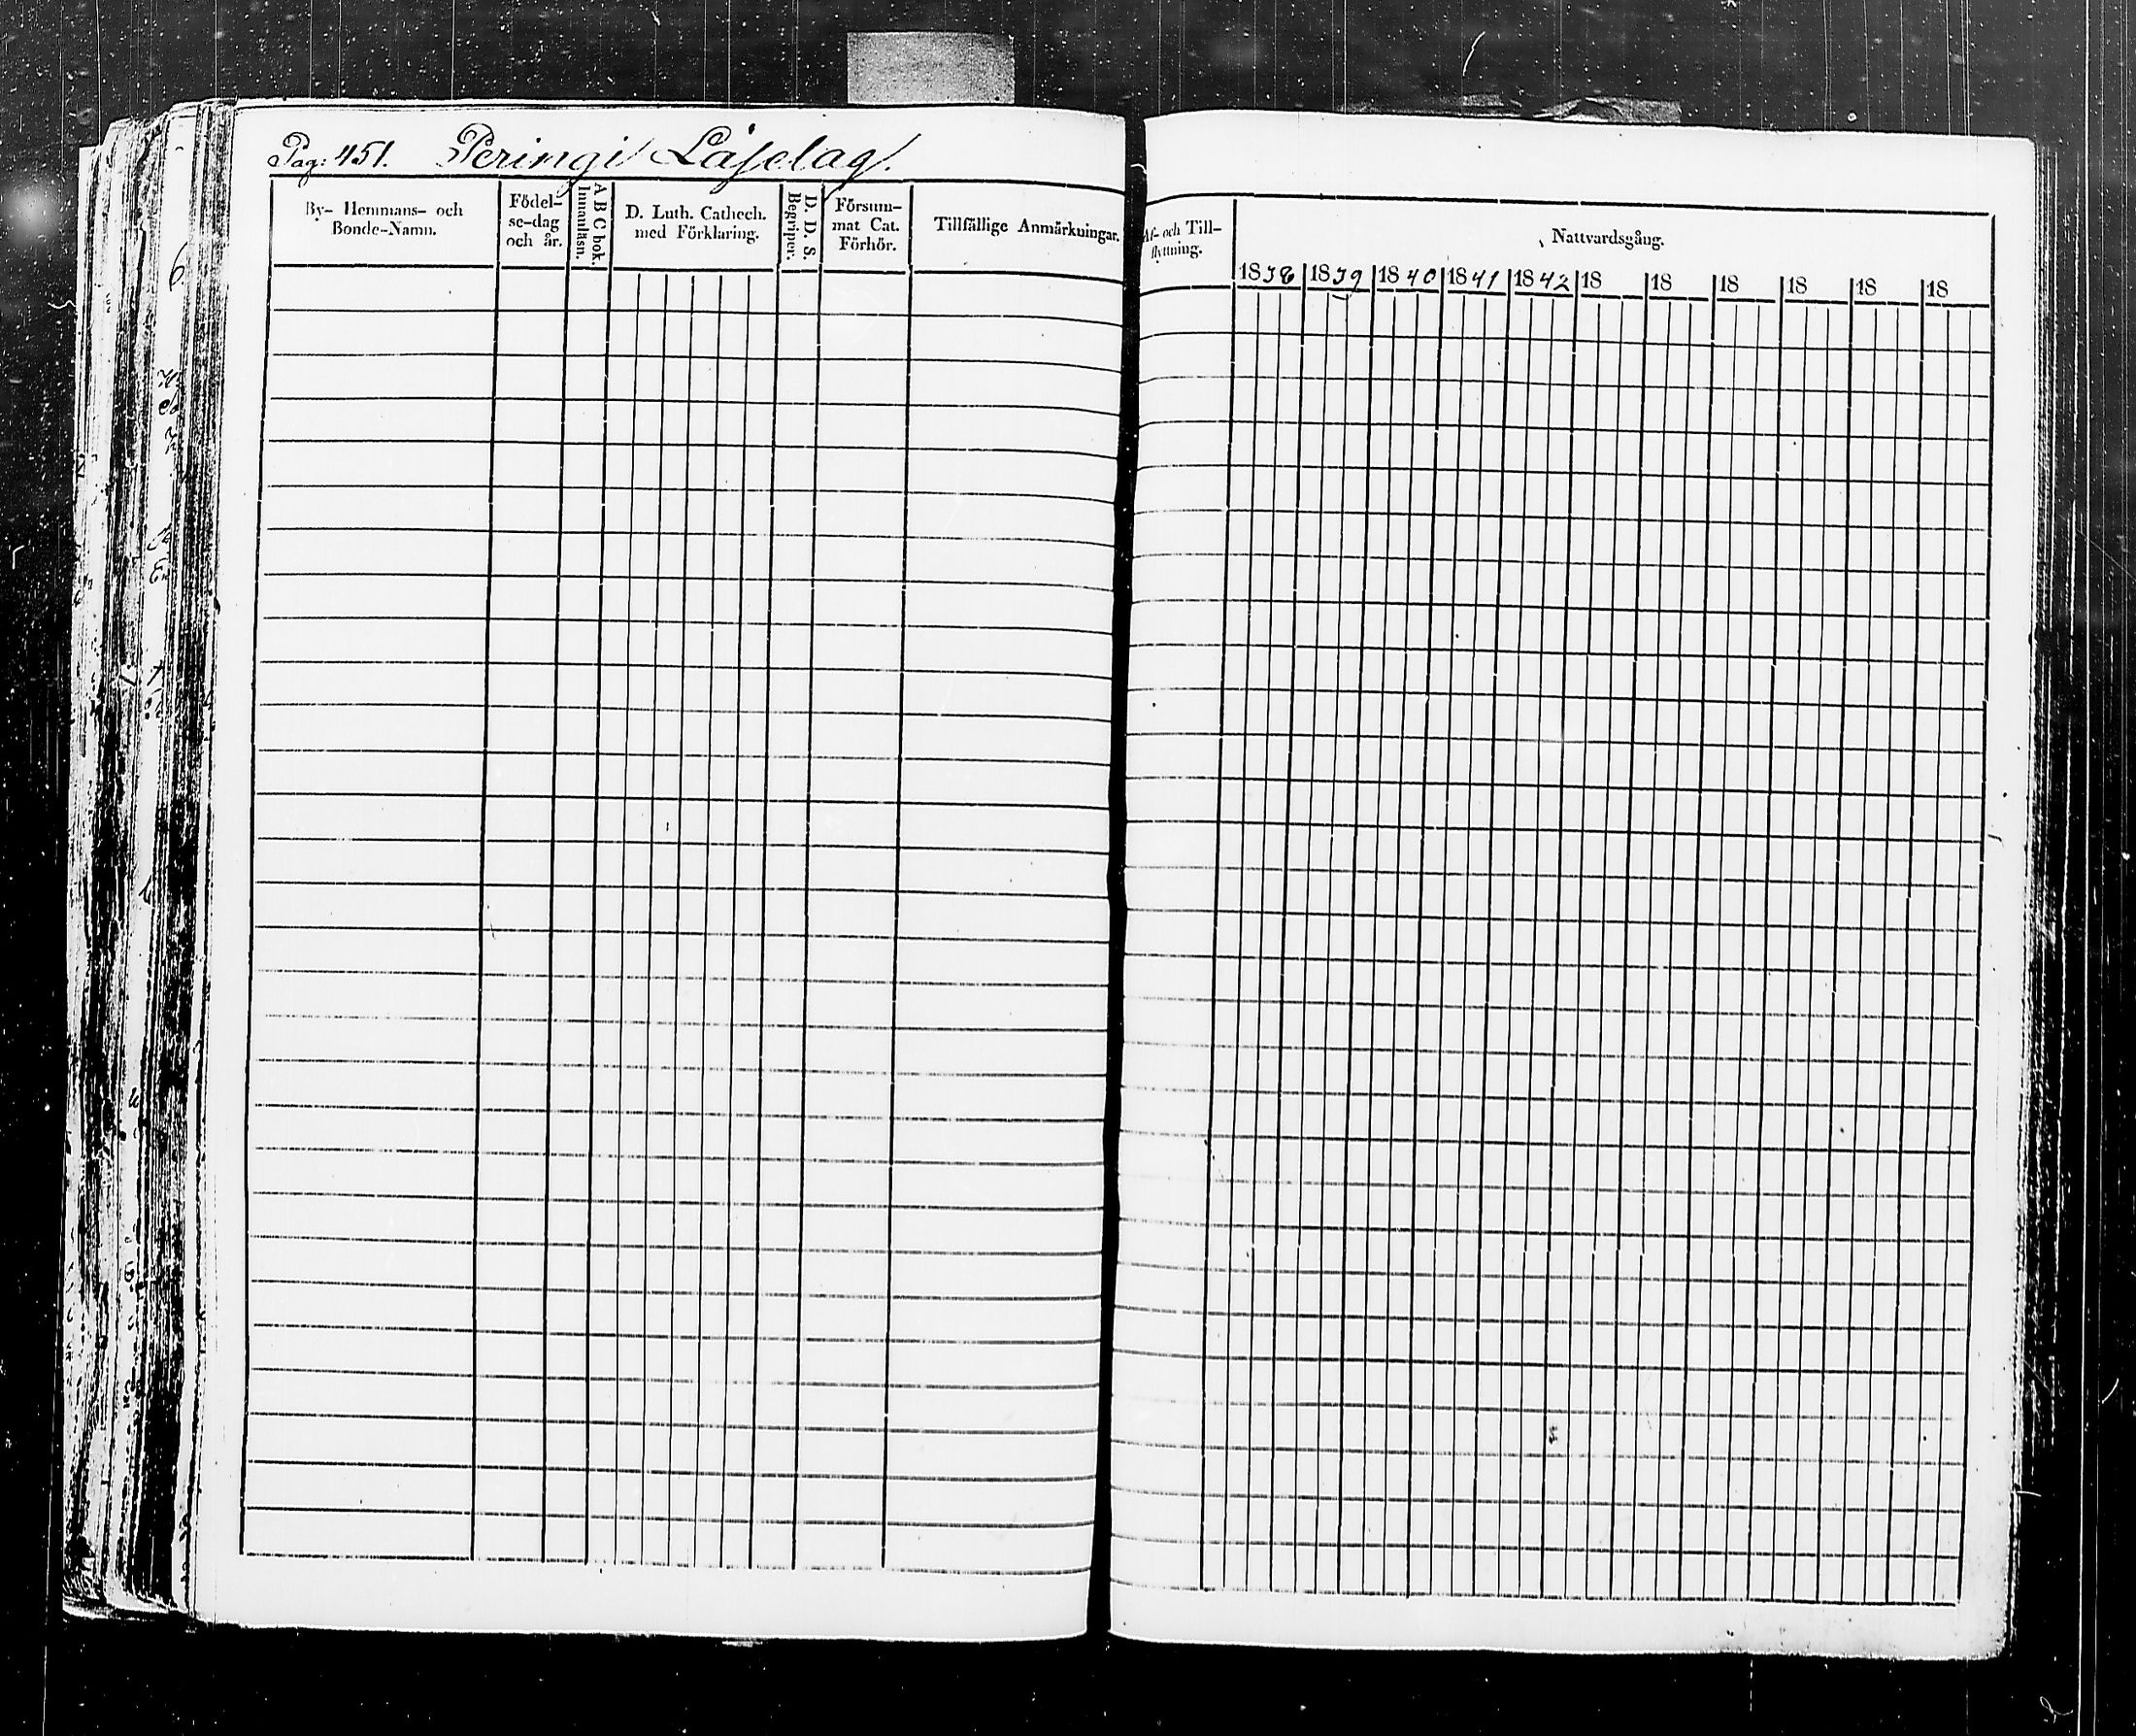 Pag: 451. Peringi Läselag.
By- Hemmans- och Bonde-Namn.
Födel-
se-dag
och år.
A B C bok.
Innanläsn.
D. Luth. Cathech.
med Förklaring.
D. D. S.
Begriper.
Försum-
mat Cat.
Förhör.
Tillfällige Anmärkningar.
Af- och Till-
flyttning.
Nattvardsgång.
1838 1839 1840 1841 1842 18 18 18 18 18 18